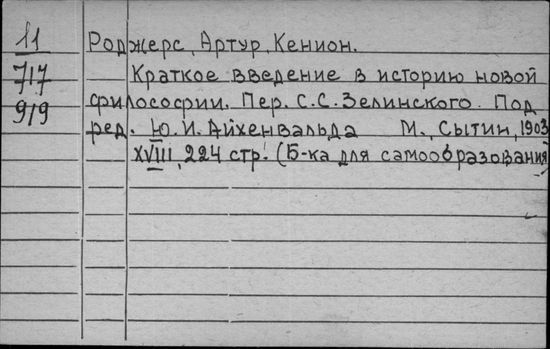 11 Роджерс, Артур Кенион.
717 Краткое введение в историю новой
919 философии. Пер. С.С. Зелинского. Под
ред. Ю.И. Айхенвальда М., Сытин, 1903
XVIII, 224 стр. (Б-ка для самообразования)